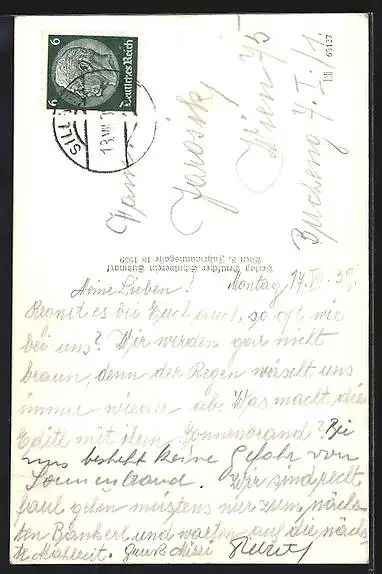 6
6
Deutsches Reich
SILL
Jarosik
Wien 75
Bucheng. 7. I./1.
RH 65127
Verlag Deutscher Schulverein Südmark
Wien 8. Fuhrmannsgasse 18 1939
Meine Lieben! Montag, 17. VII. 39.
Regnet es bei Euch auch, so oft wie
bei uns? Wir werden gar nicht
braun, denn der Regen wäscht uns
immer wieder ab. Was macht die
Edith mit dem Sonnenbrand? Bei
uns besteht keine Gefahr von
Sonnenbrand. Wir sind recht
faul gehen meistens nur zum näch-
sten Bankerl und warten auf die näch-
ste Mahlzeit. Gruß Missi